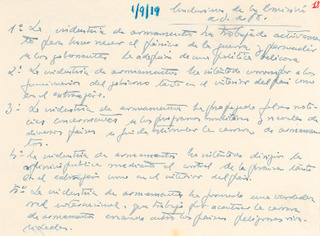 1/9/19
Conclusiones de la Comisión
a. S. de l. 8.
18
1º La industria de armamentos ha trabajado activamen-
te para favorecer el pánico de la guerra y persuadir
a los gobernantes la adopción de una política bélica
2º La industria de armamentos ha intentado corromper a los
funcionarios del gobierno tanto en el interior del país como
en el extranjero.
3º La industria de armamentos ha propagado falsas noti-
cias concernientes a los programas militares y navales de
diversos países a fin de estimular la carrera de armamen-
tos.
4º La industria de armamentos ha intentado dirigir la
opinión pública mediante el control de la prensa tanto
en el extranjero como en el interior del país.
5º La industria de armamentos ha formado una verdadera
red internacional que trabaja por acentuar la carrera
de armamentos creando entre los países peligrosas riva-
lidades.